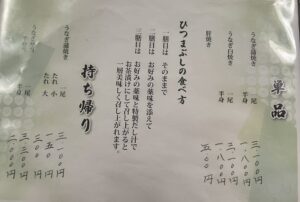 単品
うなぎ蒲焼き
一尾 三一〇〇円
半身 一八〇〇円
うなぎ白焼き
一尾 三一〇〇円
半身 一八〇〇円
肝焼き 五〇〇円
ひつまぶしの食べ方
一膳目は そのままで
二膳目は お好みの薬味を添えて
三膳目は お好みの薬味と特製だし汁で
お茶漬けにして召し上がると
一層美味しく召し上がれます。
持ち帰り
うなぎ蒲焼き
一尾 三一〇〇円
たれ 小 一五〇円
たれ 大 三〇〇円
一尾
半身